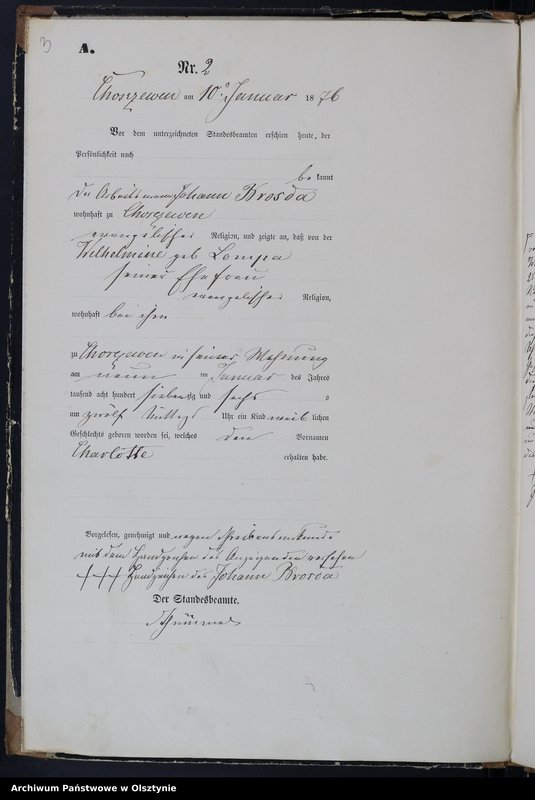 3
A.
Nr. 2
Chorzewen am 10. Januar 1876
Vor dem unterzeichneten Standesbeamten erschien heute, der
Persönlichkeit nach
bekannt
der Arbeitsmann Johann Brosda
wohnhaft zu Chorzewen
evangelischer Religion, und zeigte an, daß von der
Wilhelmine geb Lompa
seiner Ehefrau
evangelischer Religion,
wohnhaft bei ihm
zu Chorzewen in seiner Wohnung
am neun ten Januar des Jahres
tausend acht hundert siebenzig und sechs
um zwölf Mittags Uhr ein Kind weiblichen
Geschlechts geboren worden sei, welches den Vornamen
Charlotte erhalten habe.
Vorgelesen, genehmigt und wegen Schreibensunkunde
mit dem Handzeichen des Anzeigenden versehen
+++ Handzeichen des Johann Brosda
Der Standesbeamte.
Archiwum Państwowe w Olsztynie